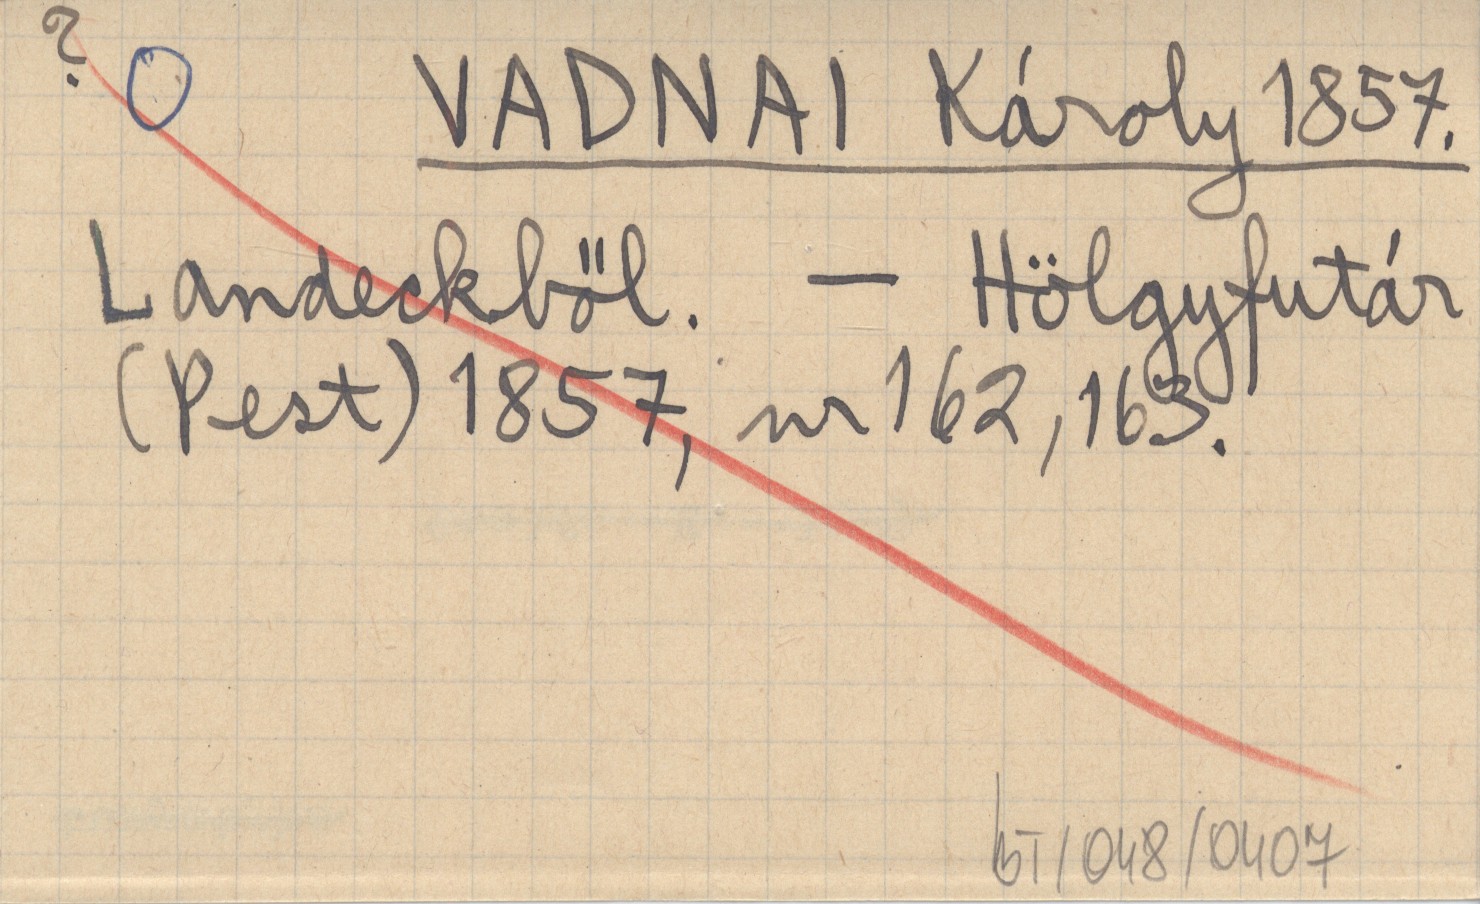 ?
VADNAI Károly 1857.
Landeckből. — Hölgyfutár
(Pest) 1857, nr 162, 163.
BT/048/0407